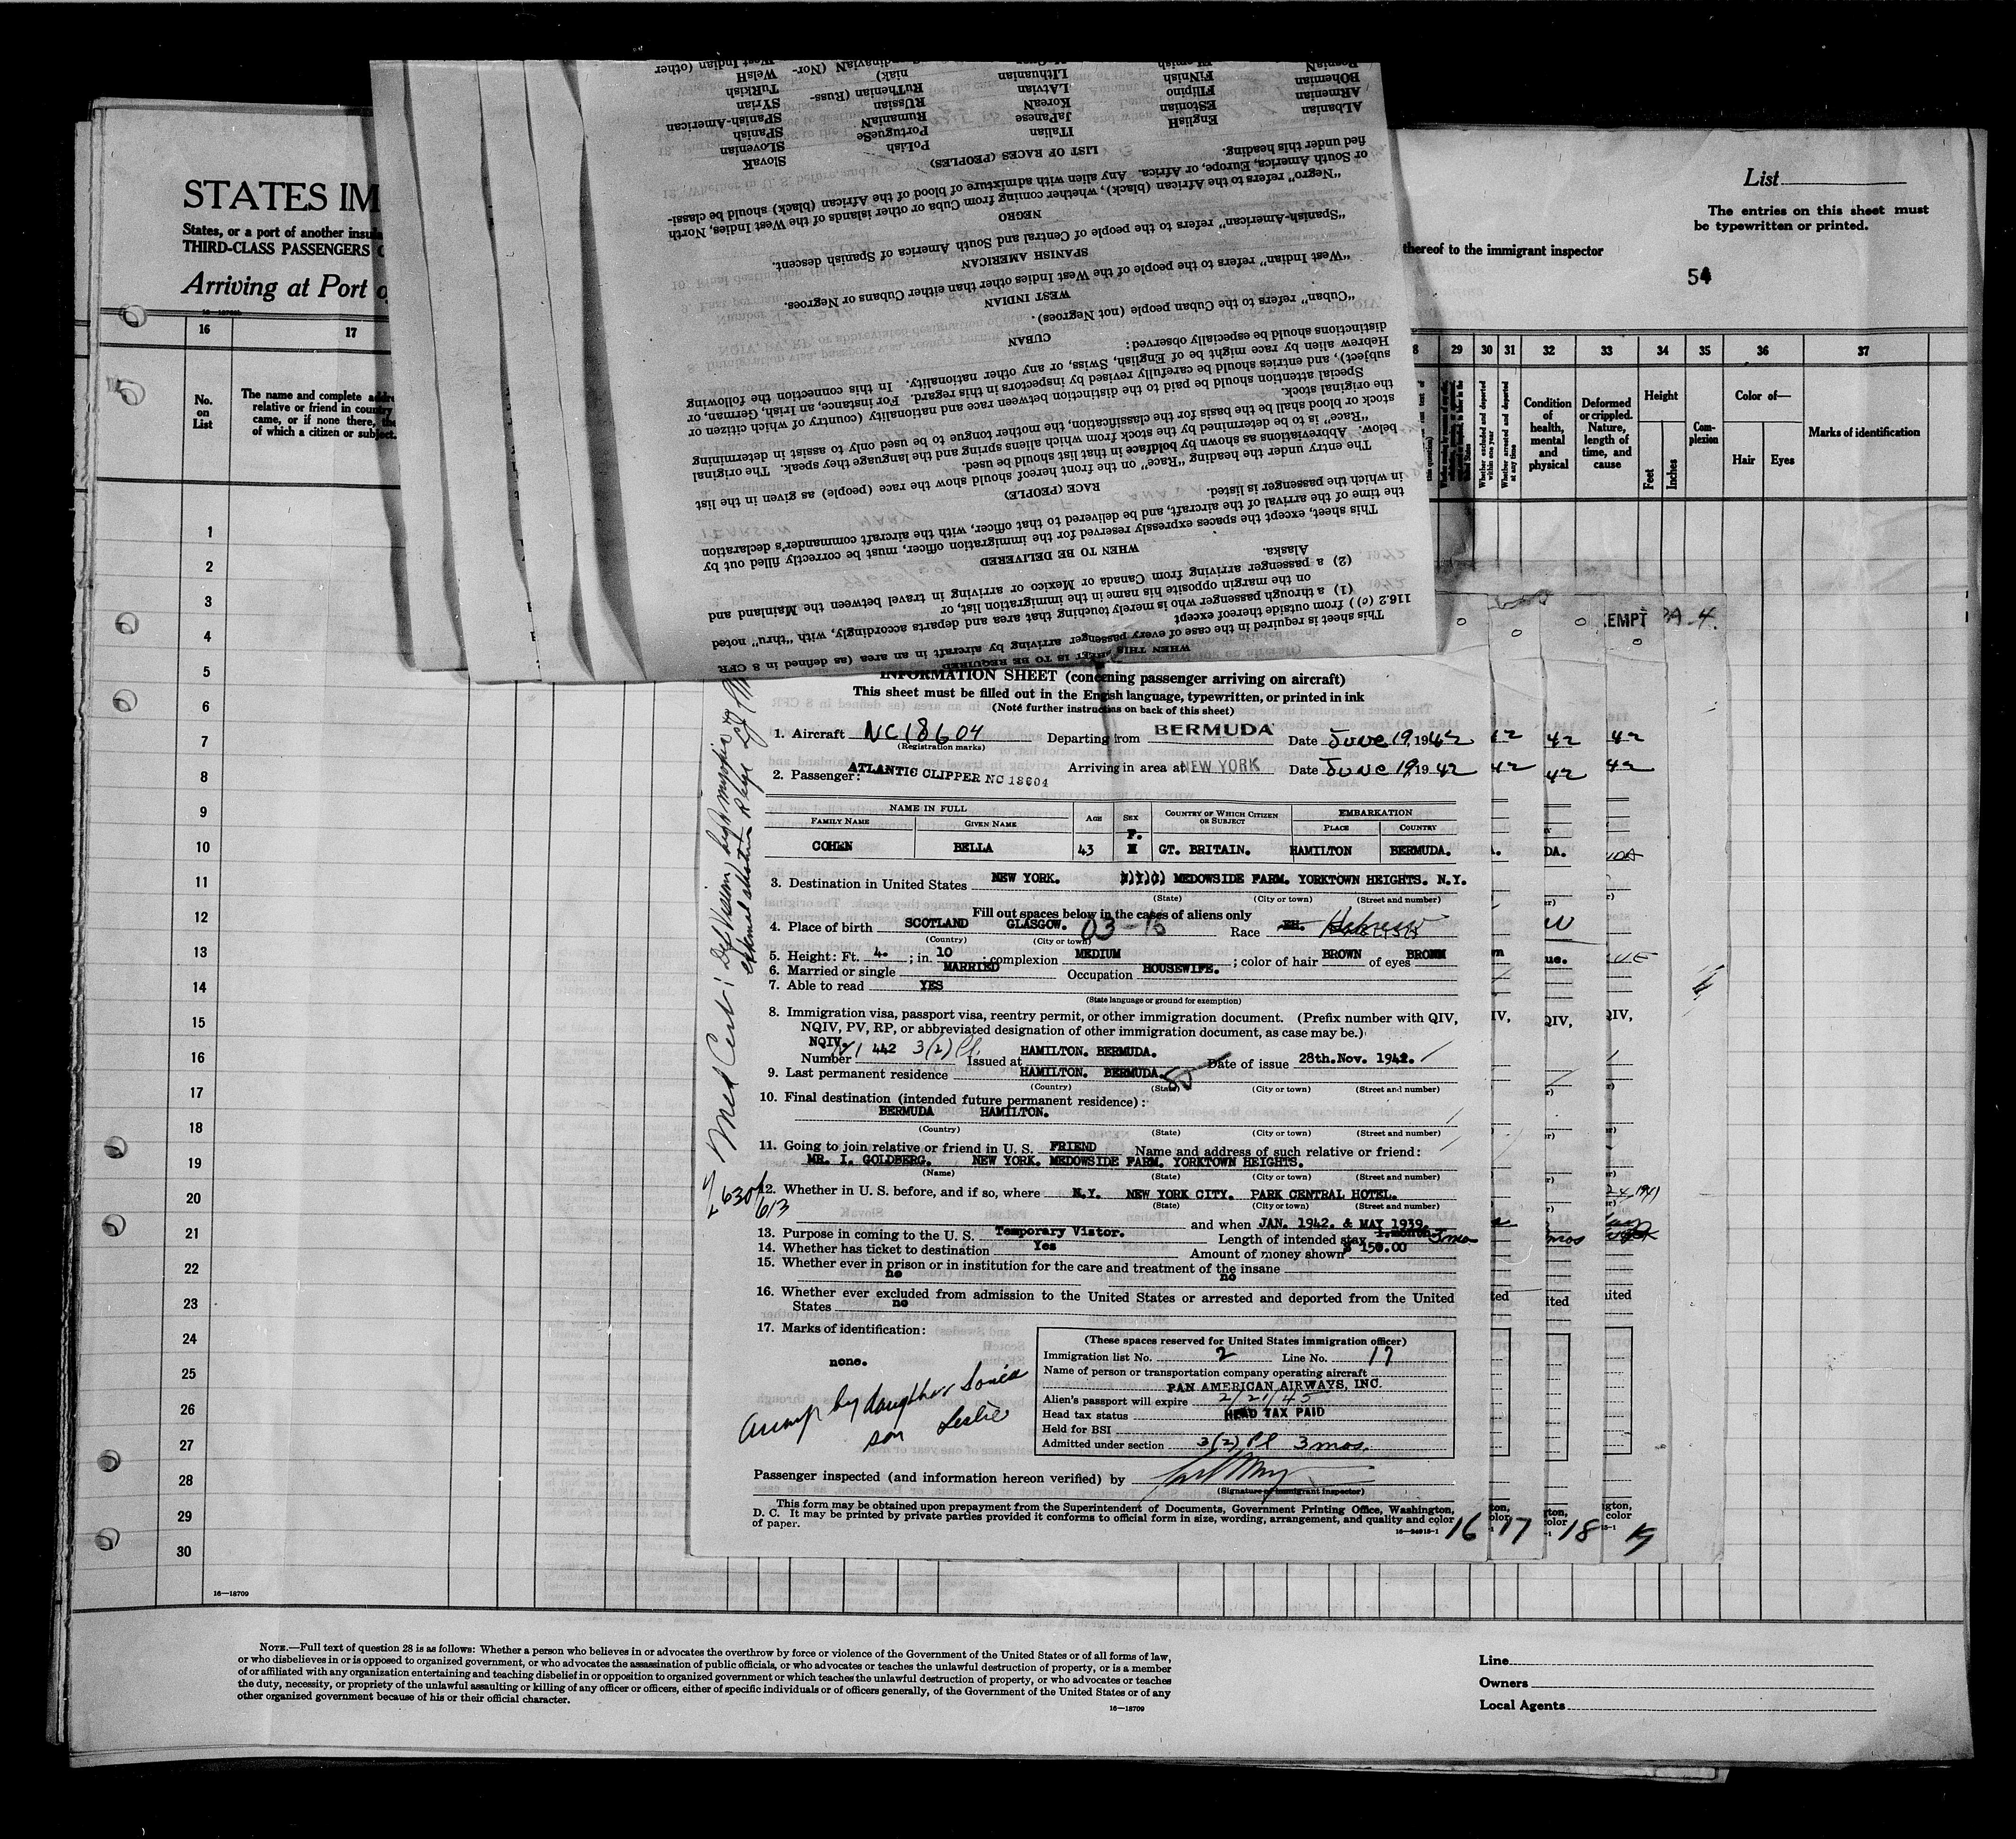 STATES IM
States, or a port of another insula
THIRD-CLASS PASSENGERS
Arriving at Port o
16
17
No. on List
The name and complete addre
relative or friend in country
came, or if none there, the
of which a citizen or subject.
List
The entries on this sheet must
be typewritten or printed.
thereof to the immigrant inspector
54
8 29 30 31 32 33 34 35 36 37
Whether excluded and deported within one year
Whether arrested and deported at any time
Condition of health, mental and physical
Deformed or crippled. Nature, length of time, and cause
Height
Feet
Inches
Complexion
Color of—
Hair
Eyes
Marks of identification
1
2
3
4
5
6
7
8
9
10
11
12
13
14
15
16
17
18
19
20
21
22
23
24
25
26
27
28
29
30
16—18709
WHEN THIS SHEET IS TO BE REQUIRED
This sheet is required in the case of every passenger arriving by aircraft in an area (as defined in 8 CFR
116.2 (c)) from outside thereof except
(1) a through passenger who is merely touching that area and departs accordingly, with "thru" noted
on the margin opposite his name in the immigration list, or
(2) a passenger arriving from Canada or Mexico or arriving in travel between the Mainland and
Alaska.
WHEN TO BE DELIVERED
This sheet, except the spaces expressly reserved for the immigration officer, must be correctly filled out by
the time of the arrival of the aircraft, and be delivered to that officer, with the aircraft commander's declaration
in which the passenger is listed.
RACE (PEOPLE)
The entry under the heading "Race" on the front hereof should show the race (people) as given in the list
below. Abbreviations as shown by boldface in that list should be used.
"Race" is to be determined by the stock from which aliens spring and the language they speak. The original
stock or blood shall be the basis for the classification, the mother tongue to be used only to assist in determining
the original stock.
Special attention should be paid to the distinction between race and nationality (country of which citizen or
subject), and entries should be carefully revised by inspectors in this regard. For instance, an Irish, German, or
Hebrew alien by race might be of English, Swiss, or any other nationality. In this connection the following
distinctions should be especially observed:
CUBAN
"Cuban" refers to the Cuban people (not Negroes).
WEST INDIAN
"West Indian" refers to the people of the West Indies other than either Cubans or Negroes.
SPANISH AMERICAN
"Spanish-American" refers to the people of Central and South America of Spanish descent.
NEGRO
"Negro" refers to the African (black), whether coming from Cuba or other islands of the West Indies, North
or South America, Europe, or Africa. Any alien with admixture of blood of the African (black) should be classi-
fied under this heading.
LIST OF RACES (PEOPLES)
ALbanian EnglisH ITalian PoLish SlovaK
ARmenian EStonian JaPanese PortugueSe SLovenian
BOhemian FIlipino KoreaN RumaniaN SPanish
BosniaN FiNnish LAtvian RUssian SPanish-American
LIthuanian RuThenian (Russ- SYrian
niak) TuRkish
WelsH
West Indian (other
INFORMATION SHEET (concerning passenger arriving on aircraft)
This sheet must be filled out in the English language, typewritten, or printed in ink
(Note further instructions on back of this sheet)
1. Aircraft NC18604 Departing from BERMUDA Date June 19, 1942
(Registration marks)
2. Passenger: ATLANTIC CLIPPER NC 18604 Arriving in area at NEW YORK Date June 19, 1942
NAME IN FULL
FAMILY NAME
GIVEN NAME
AGE
SEX
COUNTRY OF WHICH CITIZEN OR SUBJECT
EMBARKATION
PLACE
COUNTRY
COHEN BELLA 43 F. GT. BRITAIN. HAMILTON BERMUDA.
3. Destination in United States NEW YORK. MEDOWSIDE FARM. YORKTOWN HEIGHTS. N.Y.
(State) (City or town) (Street and number)
Fill out spaces below in the cases of aliens only
4. Place of birth SCOTLAND GLASGOW. 03-15 Race Hebrew
(Country) (City or town)
5. Height: Ft. 4. ; in. 10 ; complexion MEDIUM ; color of hair BROWN of eyes BROWN
6. Married or single MARRIED Occupation HOUSEWIFE.
7. Able to read YES
(State language or ground for exemption)
8. Immigration visa, passport visa, reentry permit, or other immigration document. (Prefix number with QIV,
NQIV, PV, RP, or abbreviated designation of other immigration document, as case may be.)
NQIV.
Number 442 3(2) Pl. Issued at HAMILTON. BERMUDA. Date of issue 28th. Nov. 1942.
9. Last permanent residence HAMILTON. BERMUDA.
(Country) (State) (City or town) (Street and number)
10. Final destination (intended future permanent residence):
BERMUDA HAMILTON.
(Country) (State) (City or town) (Street and number)
11. Going to join relative or friend in U. S. FRIEND Name and address of such relative or friend:
MR. I. GOLDBERG. NEW YORK. MEDOWSIDE FARM. YORKTOWN HEIGHTS.
(Name) (State) (City or town) (Street and number)
12. Whether in U. S. before, and if so, where N.Y. NEW YORK CITY. PARK CENTRAL HOTEL.
(State) (City or town) (Street and number)
and when JAN. 1942. & MAY 1939.
13. Purpose in coming to the U. S. Temporary Vistor. Length of intended stay 1.month 3 mos
14. Whether has ticket to destination Yes Amount of money shown $ 150.00
15. Whether ever in prison or in institution for the care and treatment of the insane
no no
16. Whether ever excluded from admission to the United States or arrested and deported from the United
States no
17. Marks of identification:
none.
Accomp by daughter Sonia
son Leslie
(These spaces reserved for United States immigration officer)
Immigration list No. 2 Line No. 17
Name of person or transportation company operating aircraft
PAN AMERICAN AIRWAYS, INC.
Alien's passport will expire 2/21/45
Head tax status HEAD TAX PAID
Held for BSI
Admitted under section 3(2) Pl 3 mos.
Passenger inspected (and information hereon verified) by
(Signature of immigrant inspector)
This form may be obtained upon prepayment from the Superintendent of Documents, Government Printing Office, Washington,
D. C. It may be printed by private parties provided it conforms to official form in size, wording, arrangement, and quality and color
of paper.
16 17 18 19
Med Cert: Def Vision, high myopia
630
613
EMPT
NOTE.—Full text of question 28 is as follows: Whether a person who believes in or advocates the overthrow by force or violence of the Government of the United States or of all forms of law,
or who disbelieves in or is opposed to organized government, or who advocates the assassination of public officials, or who advocates or teaches the unlawful destruction of property, or is a member
of or affiliated with any organization entertaining and teaching disbelief in or opposition to organized government or which teaches the unlawful destruction of property, or who advocates or teaches
the duty, necessity, or propriety of the unlawful assaulting or killing of any officer or officers, either of specific individuals or of officers generally, of the Government of the United States or of any
other organized government because of his or their official character.
16—18709
Line
Owners
Local Agents